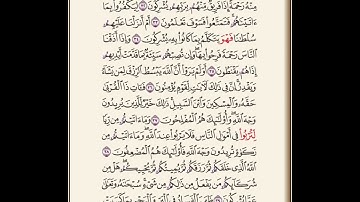 مِّنْهُ رَحْمَةً إِذَا فَرِيقٌ مِّنْهُم بِرَبِّهِمْ يُشْرِكُونَ ٣٣ لِيَكْفُرُوا۟ بِمَآ
ءَاتَيْنَٰهُمْ فَتَمَتَّعُوا۟ فَسَوْفَ تَعْلَمُونَ ٣٤ أَمْ أَنزَلْنَا عَلَيْهِمْ
سُلْطَٰنًا فَهُوَ يَتَكَلَّمُ بِمَا كَانُوا۟ بِهِۦ يُشْرِكُونَ ٣٥ وَإِذَآ أَذَقْنَا
ٱلنَّاسَ رَحْمَةً فَرِحُوا۟ بِهَا وَإِن تُصِبْهُمْ سَيِّئَةٌۢ بِمَا قَدَّمَتْ أَيْدِيهِمْ
إِذَا هُمْ يَقْنَطُونَ ٣٦ أَوَلَمْ يَرَوْا۟ أَنَّ ٱللَّهَ يَبْسُطُ ٱلرِّزْقَ لِمَن يَشَآءُ
وَيَقْدِرُ إِنَّ فِى ذَٰلِكَ لَءَايَٰتٍ لِّقَوْمٍ يُؤْمِنُونَ ٣٧ فَـَٔاتِ ذَا ٱلْقُرْبَىٰ
حَقَّهُۥ وَٱلْمِسْكِينَ وَٱبْنَ ٱلسَّبِيلِ ذَٰلِكَ خَيْرٌ لِّلَّذِينَ يُرِيدُونَ
وَجْهَ ٱللَّهِ وَأُو۟لَٰٓئِكَ هُمُ ٱلْمُفْلِحُونَ ٣٨ وَمَآ ءَاتَيْتُم مِّن رِّبًا
لِّيَرْبُوَا۟ فِىٓ أَمْوَٰلِ ٱلنَّاسِ فَلَا يَرْبُوا۟ عِندَ ٱللَّهِ وَمَآ ءَاتَيْتُم مِّن
زَكَوٰةٍ تُرِيدُونَ وَجْهَ ٱللَّهِ فَأُو۟لَٰٓئِكَ هُمُ ٱلْمُضْعِفُونَ ٣٩
ٱللَّهُ ٱلَّذِى خَلَقَكُمْ ثُمَّ رَزَقَكُمْ ثُمَّ يُمِيتُكُمْ ثُمَّ يُحْيِيكُمْ هَلْ مِن
شُرَكَآئِكُم مَّن يَفْعَلُ مِن ذَٰلِكُم مِّن شَىْءٍ سُبْحَٰنَهُۥ وَتَعَٰلَىٰ